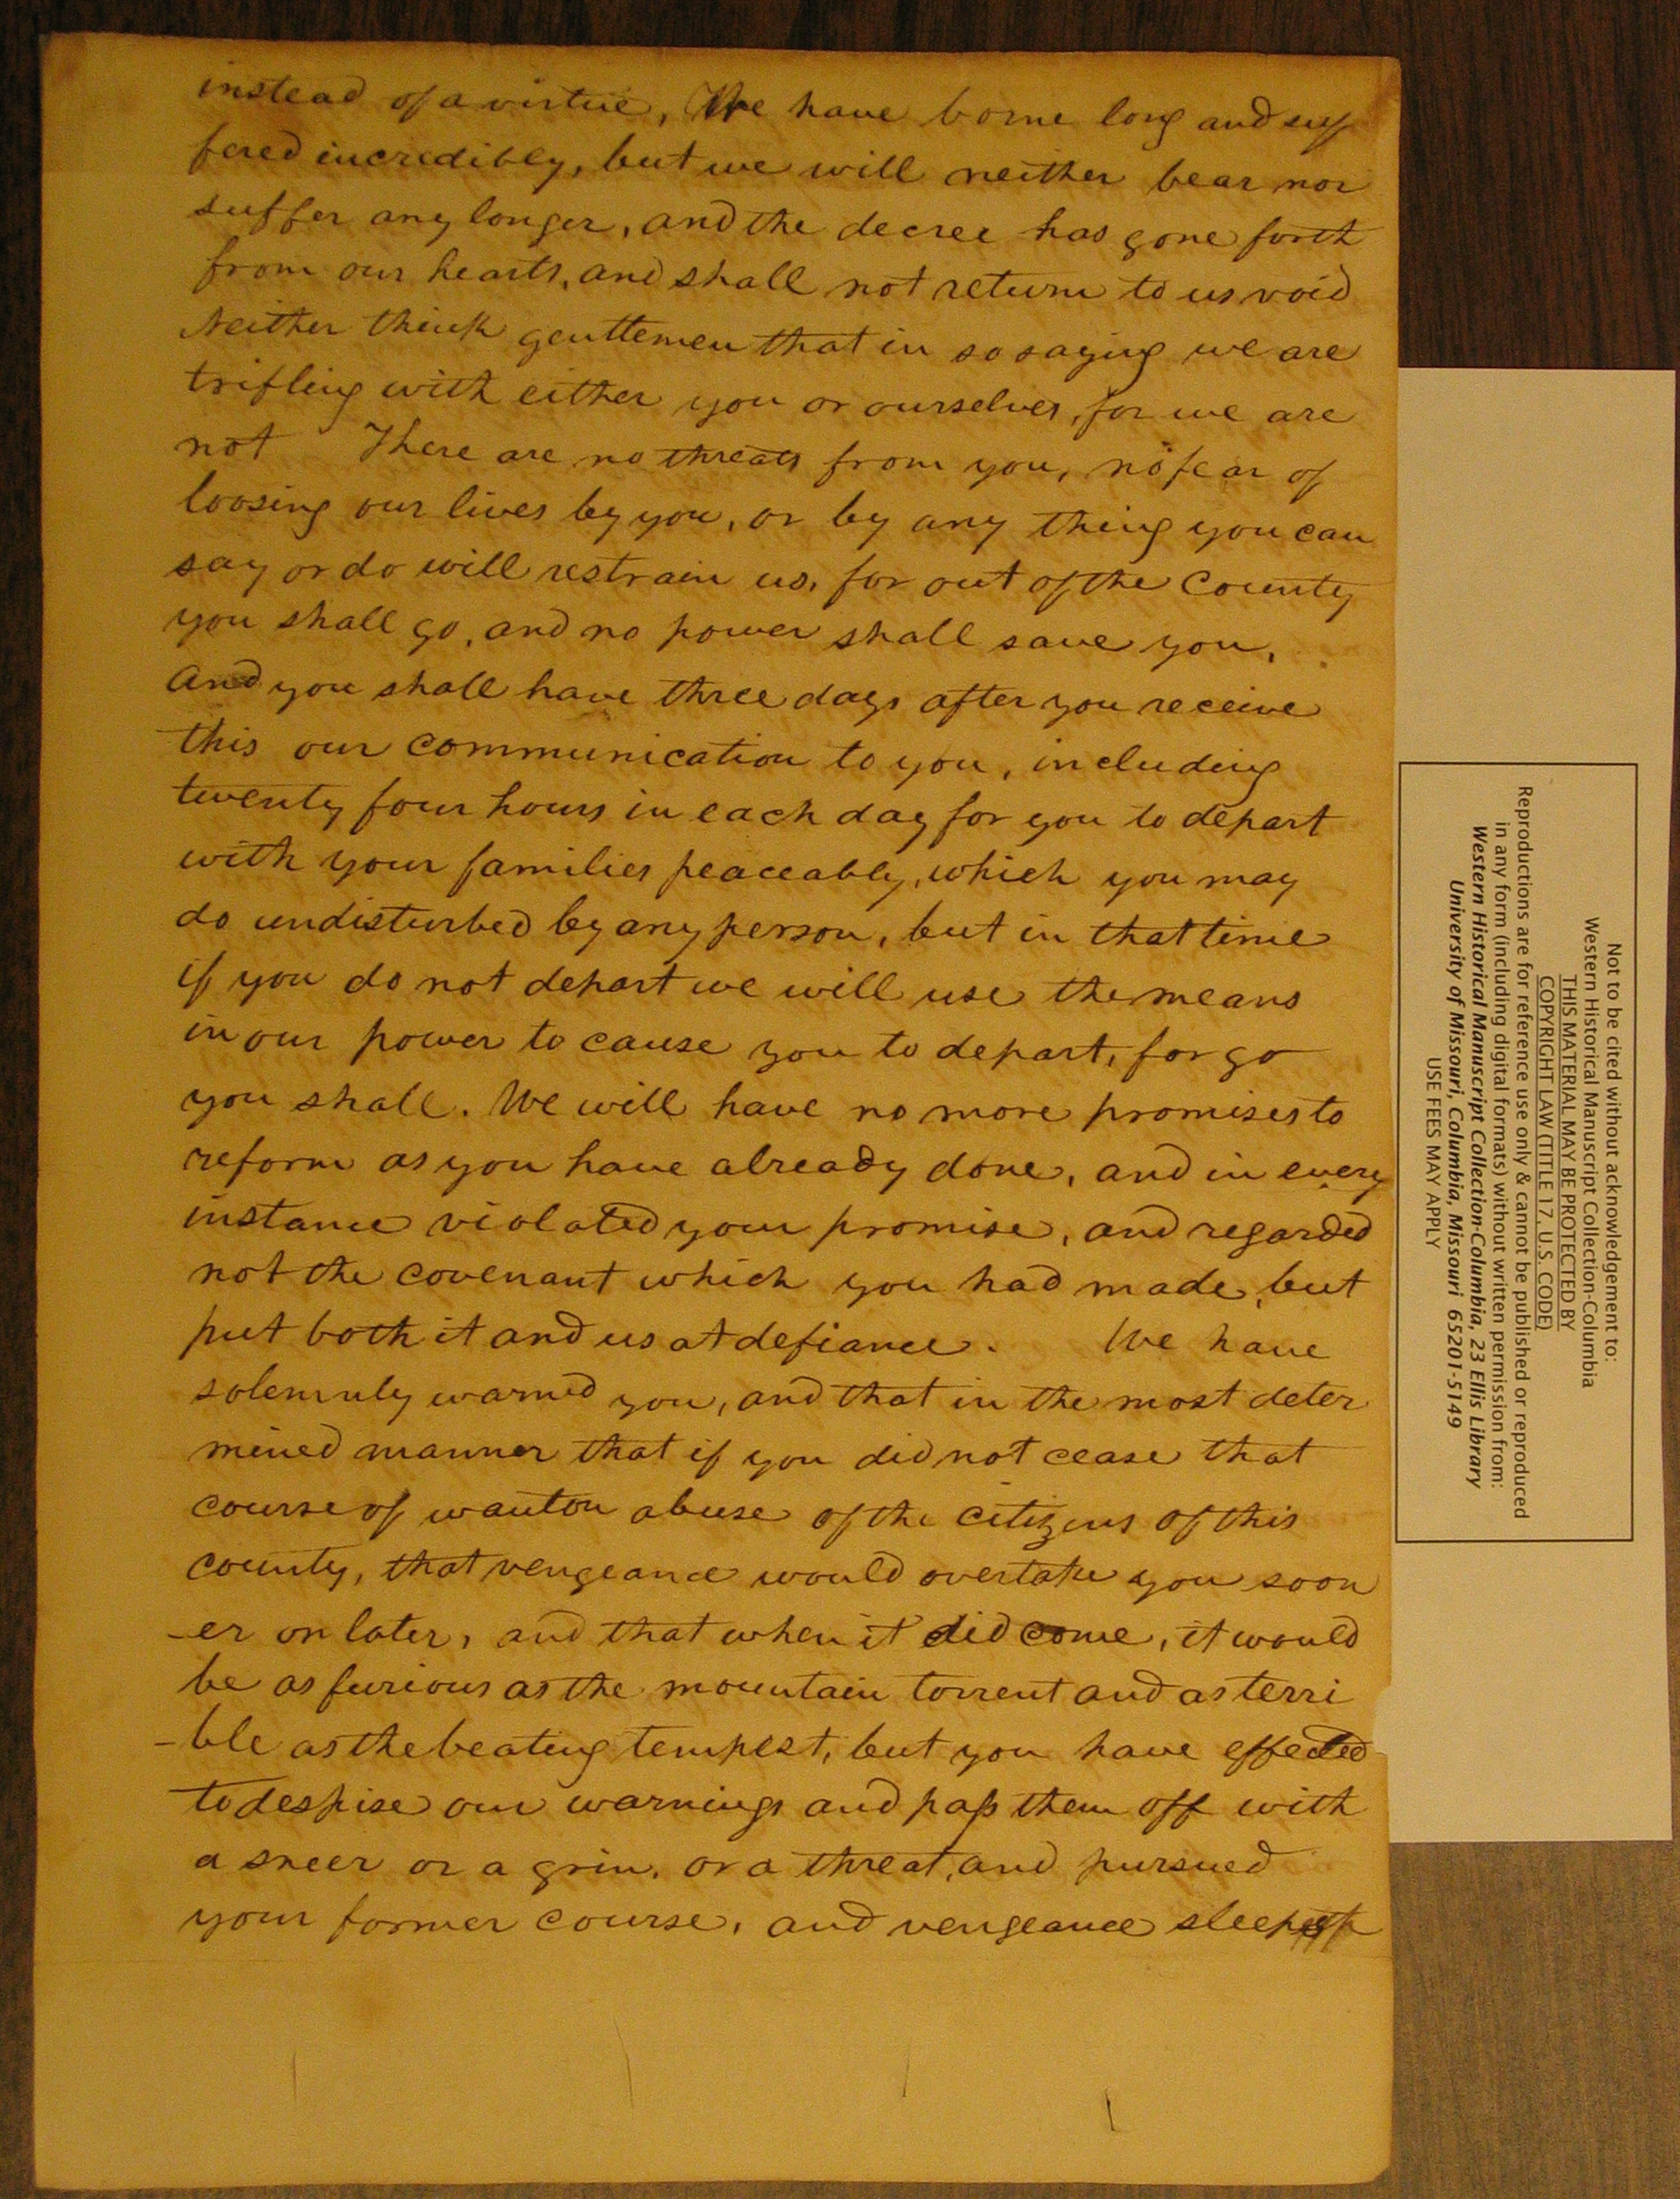 instead of a virtue, We have borne long and suf
fered incredibly, but we will neither bear nor
suffer any longer, and the decree has gone forth
from our hearts, and shall not return to us void
Neither think genttemen that in so saying we are
trifling with either you or ourselves, for we are
not There are no threats from you, no fear of
loosing our lives by you, or by any thing you can
say or do will restrain us, for out of the County
you shall go, and no power shall save you,
And you shall have three days after you receive
this our communication to you, including
twenty four hours in each day for you to depart
with your families peaceably, which you may
do undisturbed by any person, but in that time
if you do not depart we will use the means
in our power to cause you to depart, for go
you shall. We will have no more promises to
reform as you have already done, and in every
instance violated your promise, and regarded
not the covenant which you had made, but
put both it and us at defiance. We have
solemnly warned you, and that in the most deter
mined manner that if you did not cease that
course of wanton abuse of the citizens of this
county, that vengeance would overtake you soon
-er or later, and that when it did come, it would
be as furious as the mountain torrent and as terri
-ble as the beating tempest, but you have effected
to despise our warnings and pass them off with
a sneer or a grin, or a threat, and pursued
your former course, and vengeance sleepeth
Not to be cited without acknowledgement to:
Western Historical Manuscript Collection-Columbia
THIS MATERIAL MAY BE PROTECTED BY
COPYRIGHT LAW (TITLE 17, U.S. CODE)
Reproductions are for reference use only & cannot be published or reproduced
in any form (including digital formats) without written permission from:
Western Historical Manuscript Collection-Columbia, 23 Ellis Library
University of Missouri, Columbia, Missouri 65201-5149
USE FEES MAY APPLY